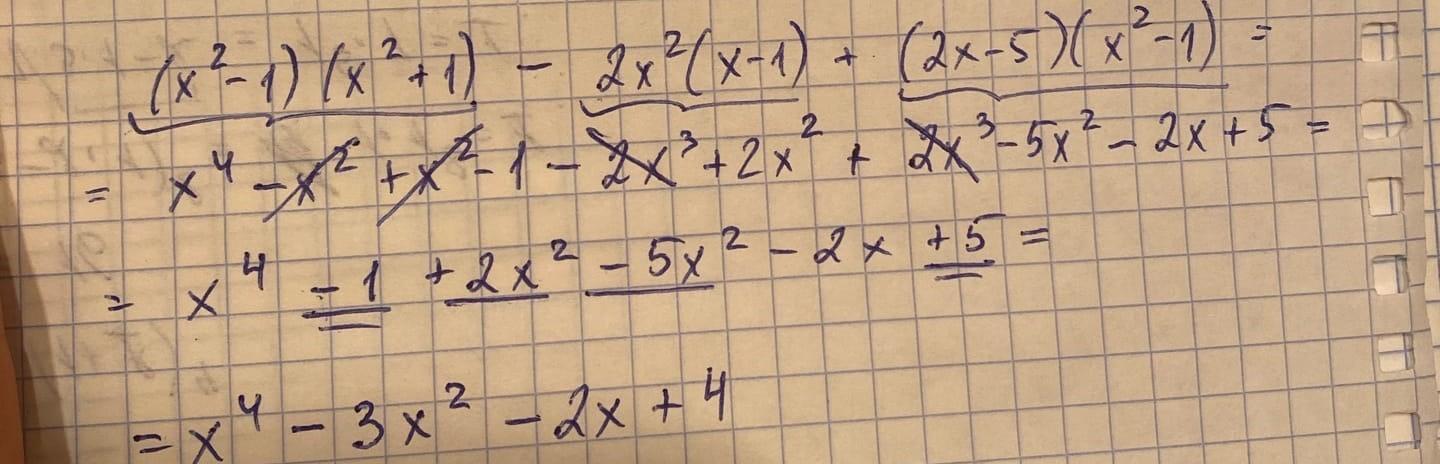 (x² - 1)(x² + 1) - 2x²(x - 1) + (2x - 5)(x² - 1) =
= x⁴ - x² + x² - 1 - 2x³ + 2x² + 2x³ - 5x² - 2x + 5 =
= x⁴ - 1 + 2x² - 5x² - 2x + 5 =
= x⁴ - 3x² - 2x + 4